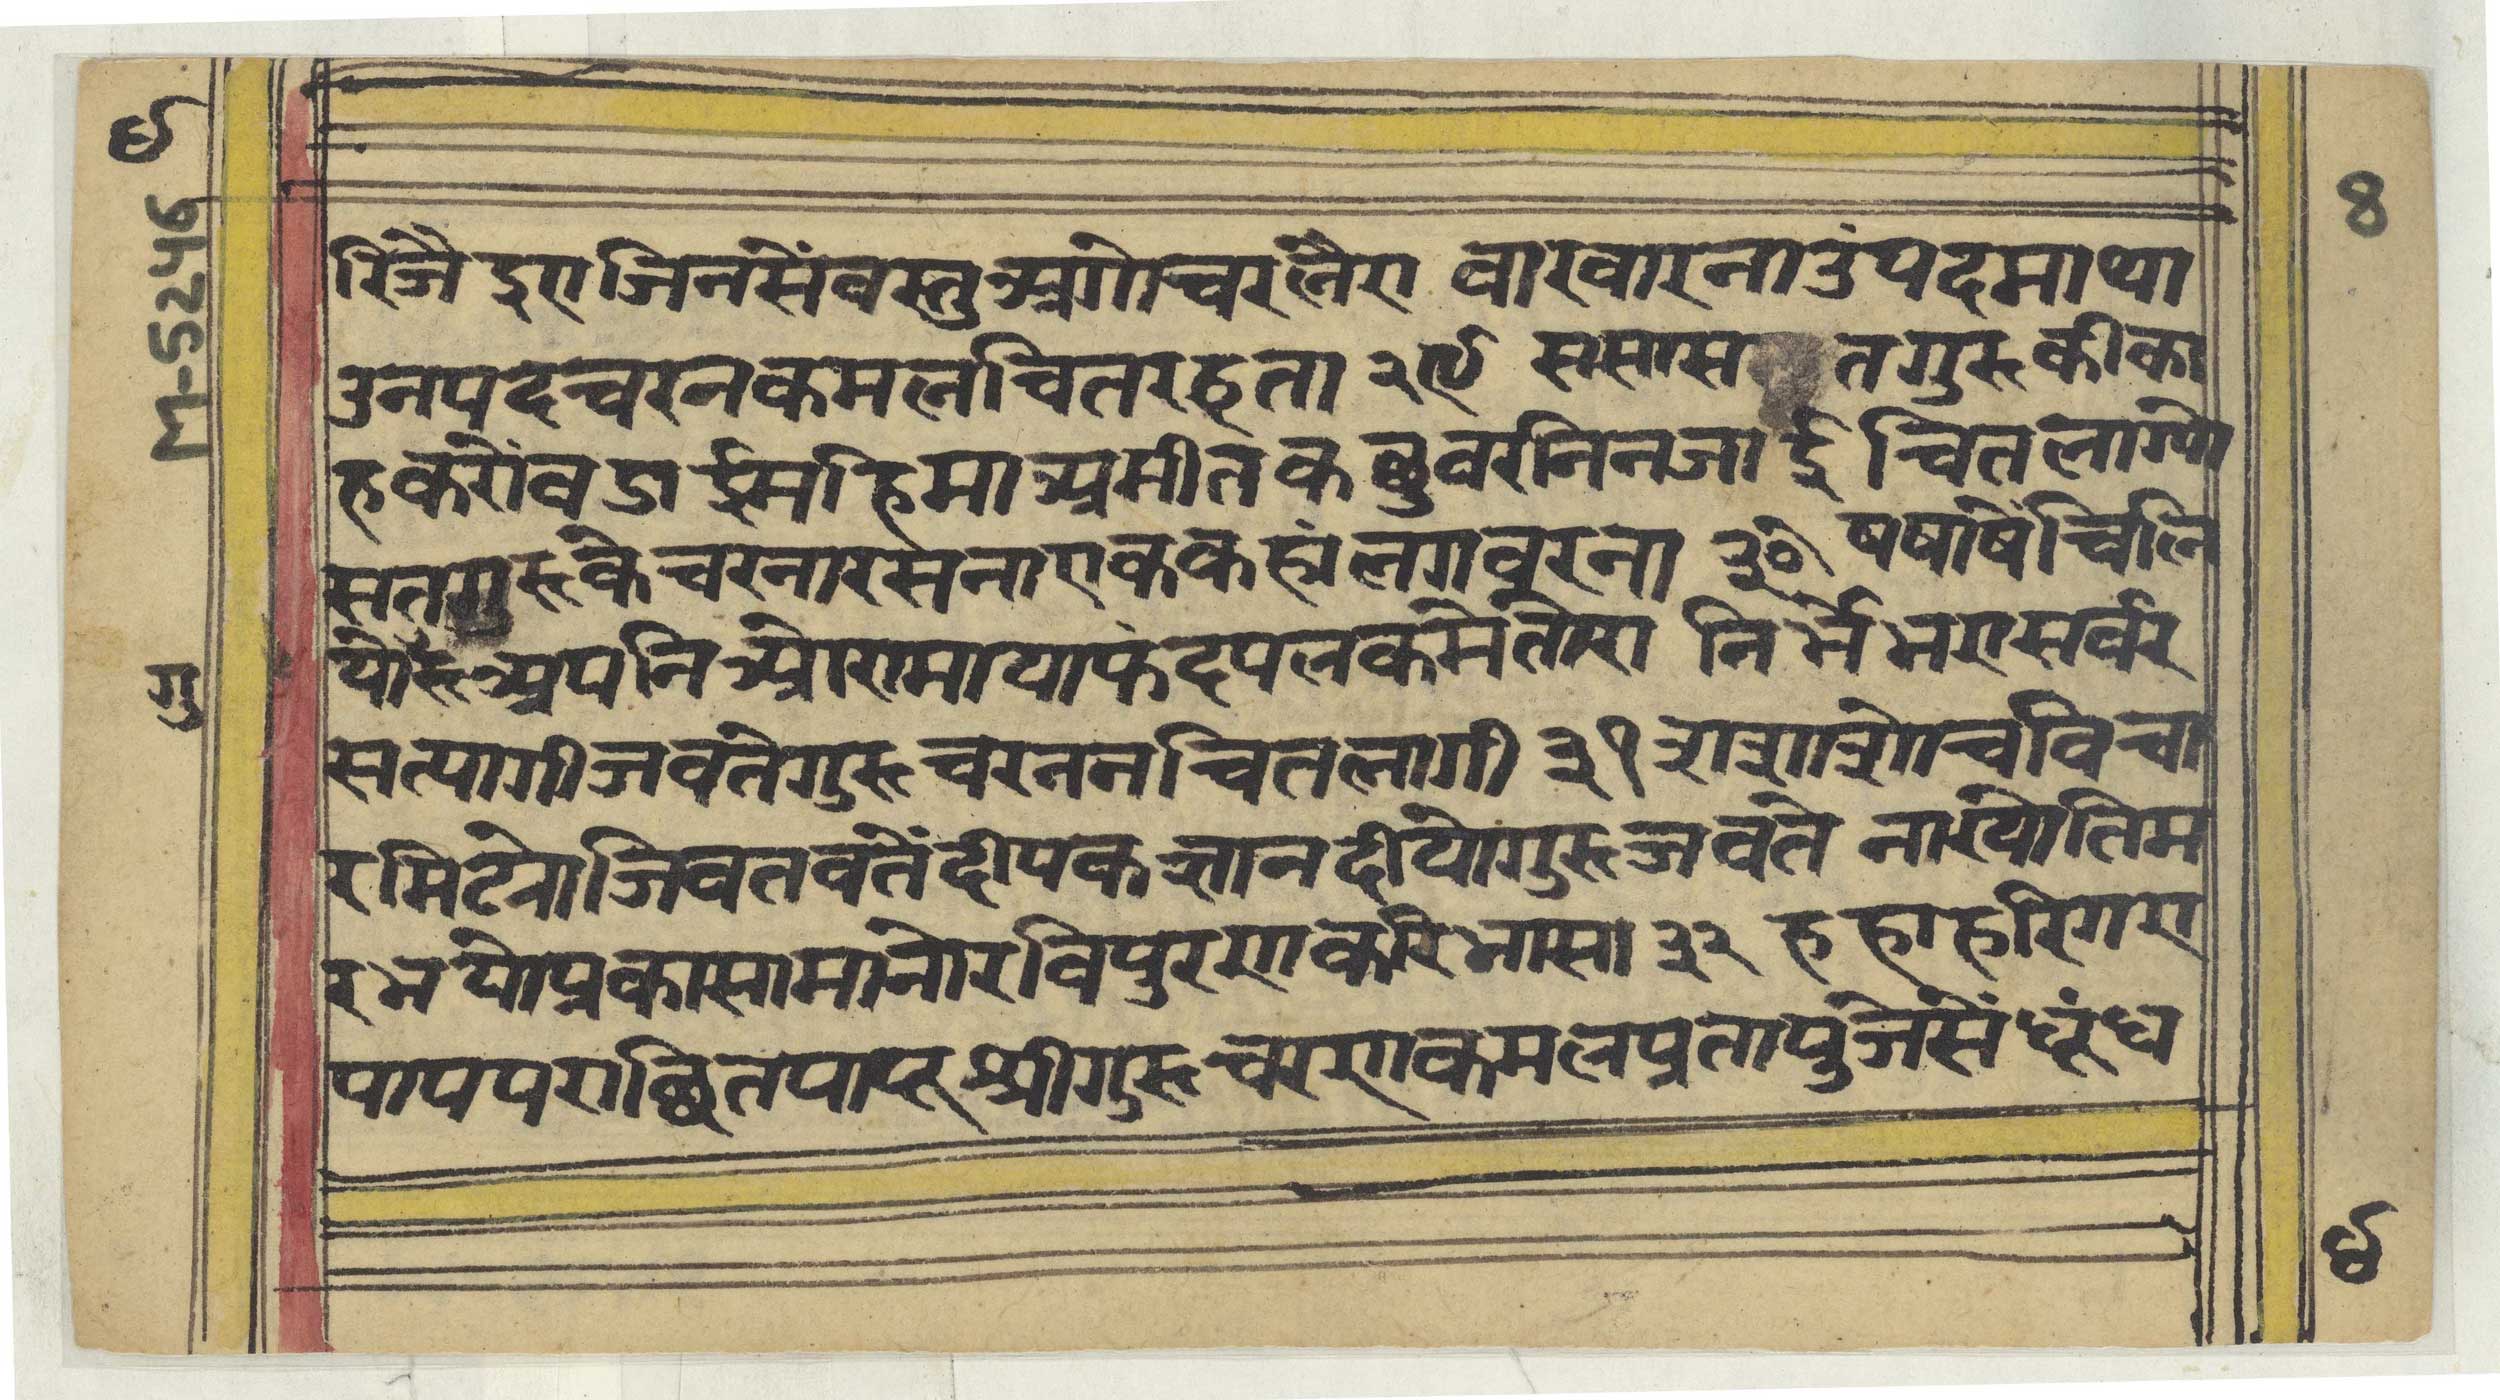 ४
8
M-5246
रिजै इरा जिनसेंवस्तुअगोचरलैरा वारवारनाउंपदमाथा
उनपदचरनकमलचितरहता २९ ससास तगुरुकीका
हकरोंवडाईमहिमाअमीतकछुवरनिनजाई चितलाग्यो
सतगुरुकेचरनारसनाएककहांलगवरना ३० षषाषेंचिलि
योगुरुअपनिओरामायाफंदपलकमेतोरा निर्भेभरासर्वर
सत्यागीजवतेगुरुचरननचितलागी ३१ शशाशोचविचा
रमिटेराजिवतवतेंदीपकज्ञानदीयोगुरुजवते नाख्योतिम
रभयोप्रकासामानोरविपुरणकरिभासा ३२ हहाहरिगरा
पापपराछितपापू श्रीगुरुचरणकमलप्रतापुजेसेंधूंध
गु
४